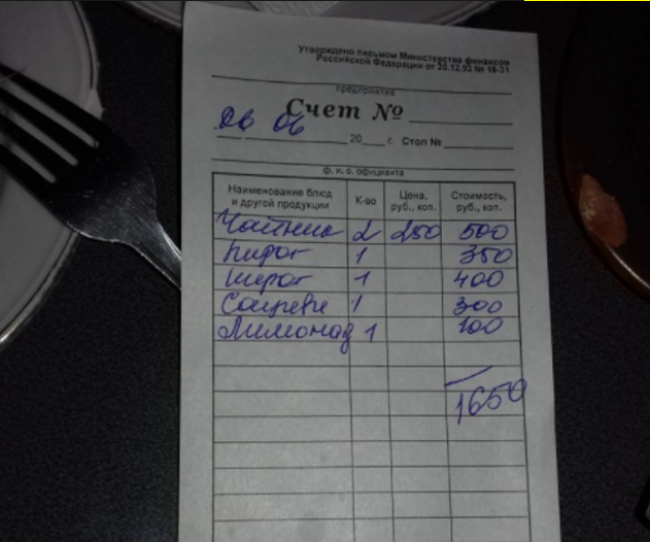 Утверждено письмом Министерства финансов
Российской Федерации от 20.12.93 № 16-31
предприятие
Счет №
06 06 20 г. Стол №
ф. и. о. официанта
Наименование блюд и другой продукции К-во Цена, руб., коп. Стоимость, руб., коп.
Чайник 2 250 500
пирог 1 350
пирог 1 400
1 300
Лимонад 1 100
1650